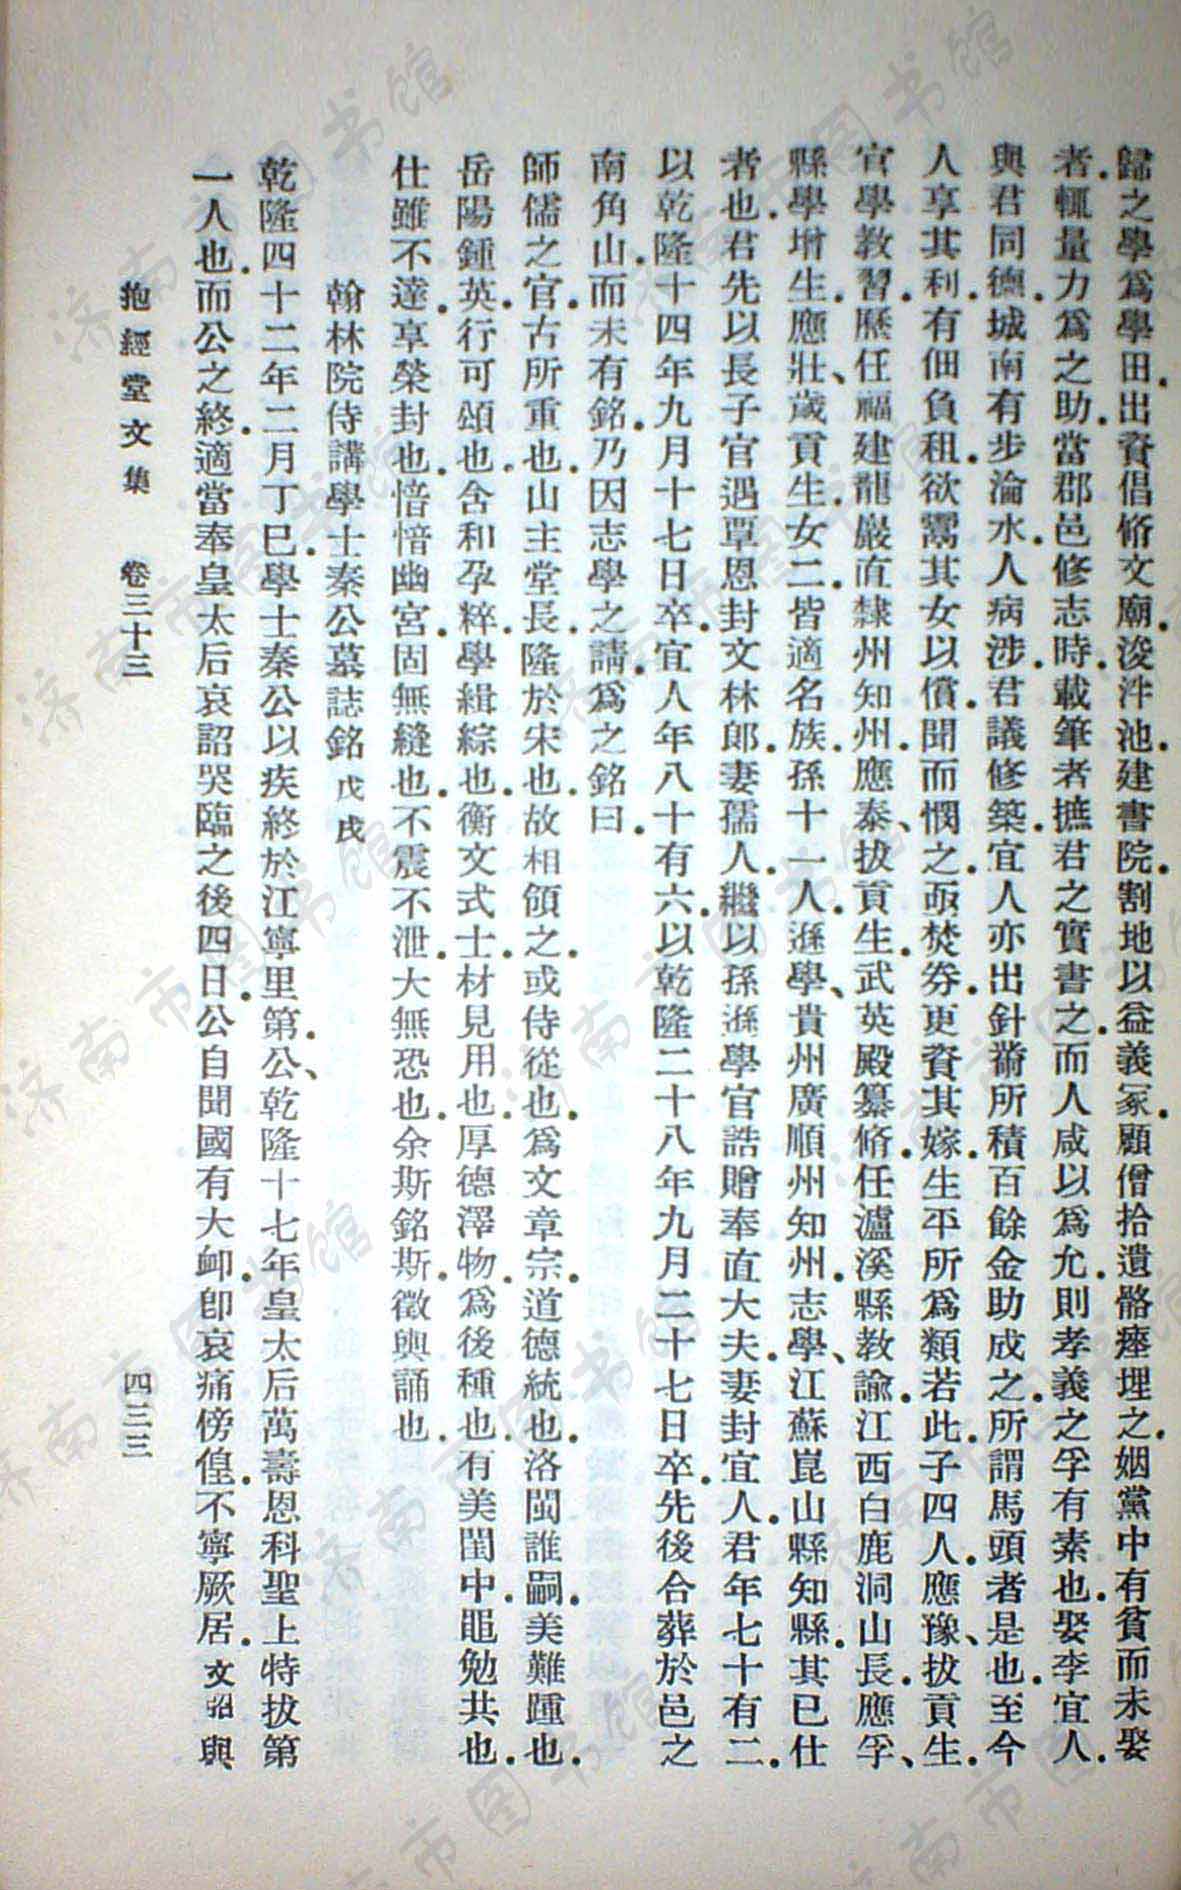 歸之學爲學田.出資倡脩文廟.浚泮池.建書院.割地以益義冢.顧僧拾遺骼瘞埋之.姻黨中有貧而未娶
者.輒量力爲之助.當郡邑修志時.載筆者摭君之實書之.而人咸以爲允.則孝義之孚有素也.娶李宜人.
與君同德.城南有步淪水.人病涉.君議修築.宜人亦出針黹所積百餘金助成之.所謂馬頭者是也.至今
人享其利.有佃負租.欲鬻其女以償.聞而憫之.亟焚券.更資其嫁.生平所爲類若此.子四人.應豫、拔貢生.
官學教習.歷任福建龍巖直隸州知州.應泰、拔貢生.武英殿纂脩.任瀘溪縣教諭.江西白鹿洞山長.應孚、
縣學增生.應壯、歲貢生.女二.皆適名族.孫十一人.遜學、貴州廣順州知州.志學、江蘇崑山縣知縣.其已仕
者也.君先以長子官遇覃恩封文林郎.妻孺人.繼以孫遜學官誥贈奉直大夫.妻封宜人.君年七十有二.
以乾隆十四年九月十七日卒.宜人年八十有六.以乾隆二十八年九月二十七日卒.先後合葬於邑之
南角山.而未有銘.乃因志學之請.爲之銘曰.
師儒之官.古所重也.山主堂長.隆於宋也.故相領之.或侍從也.爲文章宗.道德統也.洛閩誰嗣.美難踵也.
岳陽鍾英.行可頌也.含和孕粹.學緝綜也.衡文式士.材見用也.厚德澤物.爲後種也.有美閨中.黽勉共也.
仕雖不達.享榮封也.愔愔幽宮.固無縫也.不震不泄.大無恐也.余斯銘斯.徵輿誦也.
翰林院侍講學士秦公墓誌銘 戊戌
乾隆四十二年二月丁巳.學士秦公以疾終於江寧里第.公、乾隆十七年皇太后萬壽恩科聖上特拔第
一人也.而公之終.適當奉皇太后哀詔哭臨之後四日.公自聞國有大卹.卽哀痛傍偟.不寧厥居.文弨與
抱經堂文集 卷三十三 四三三